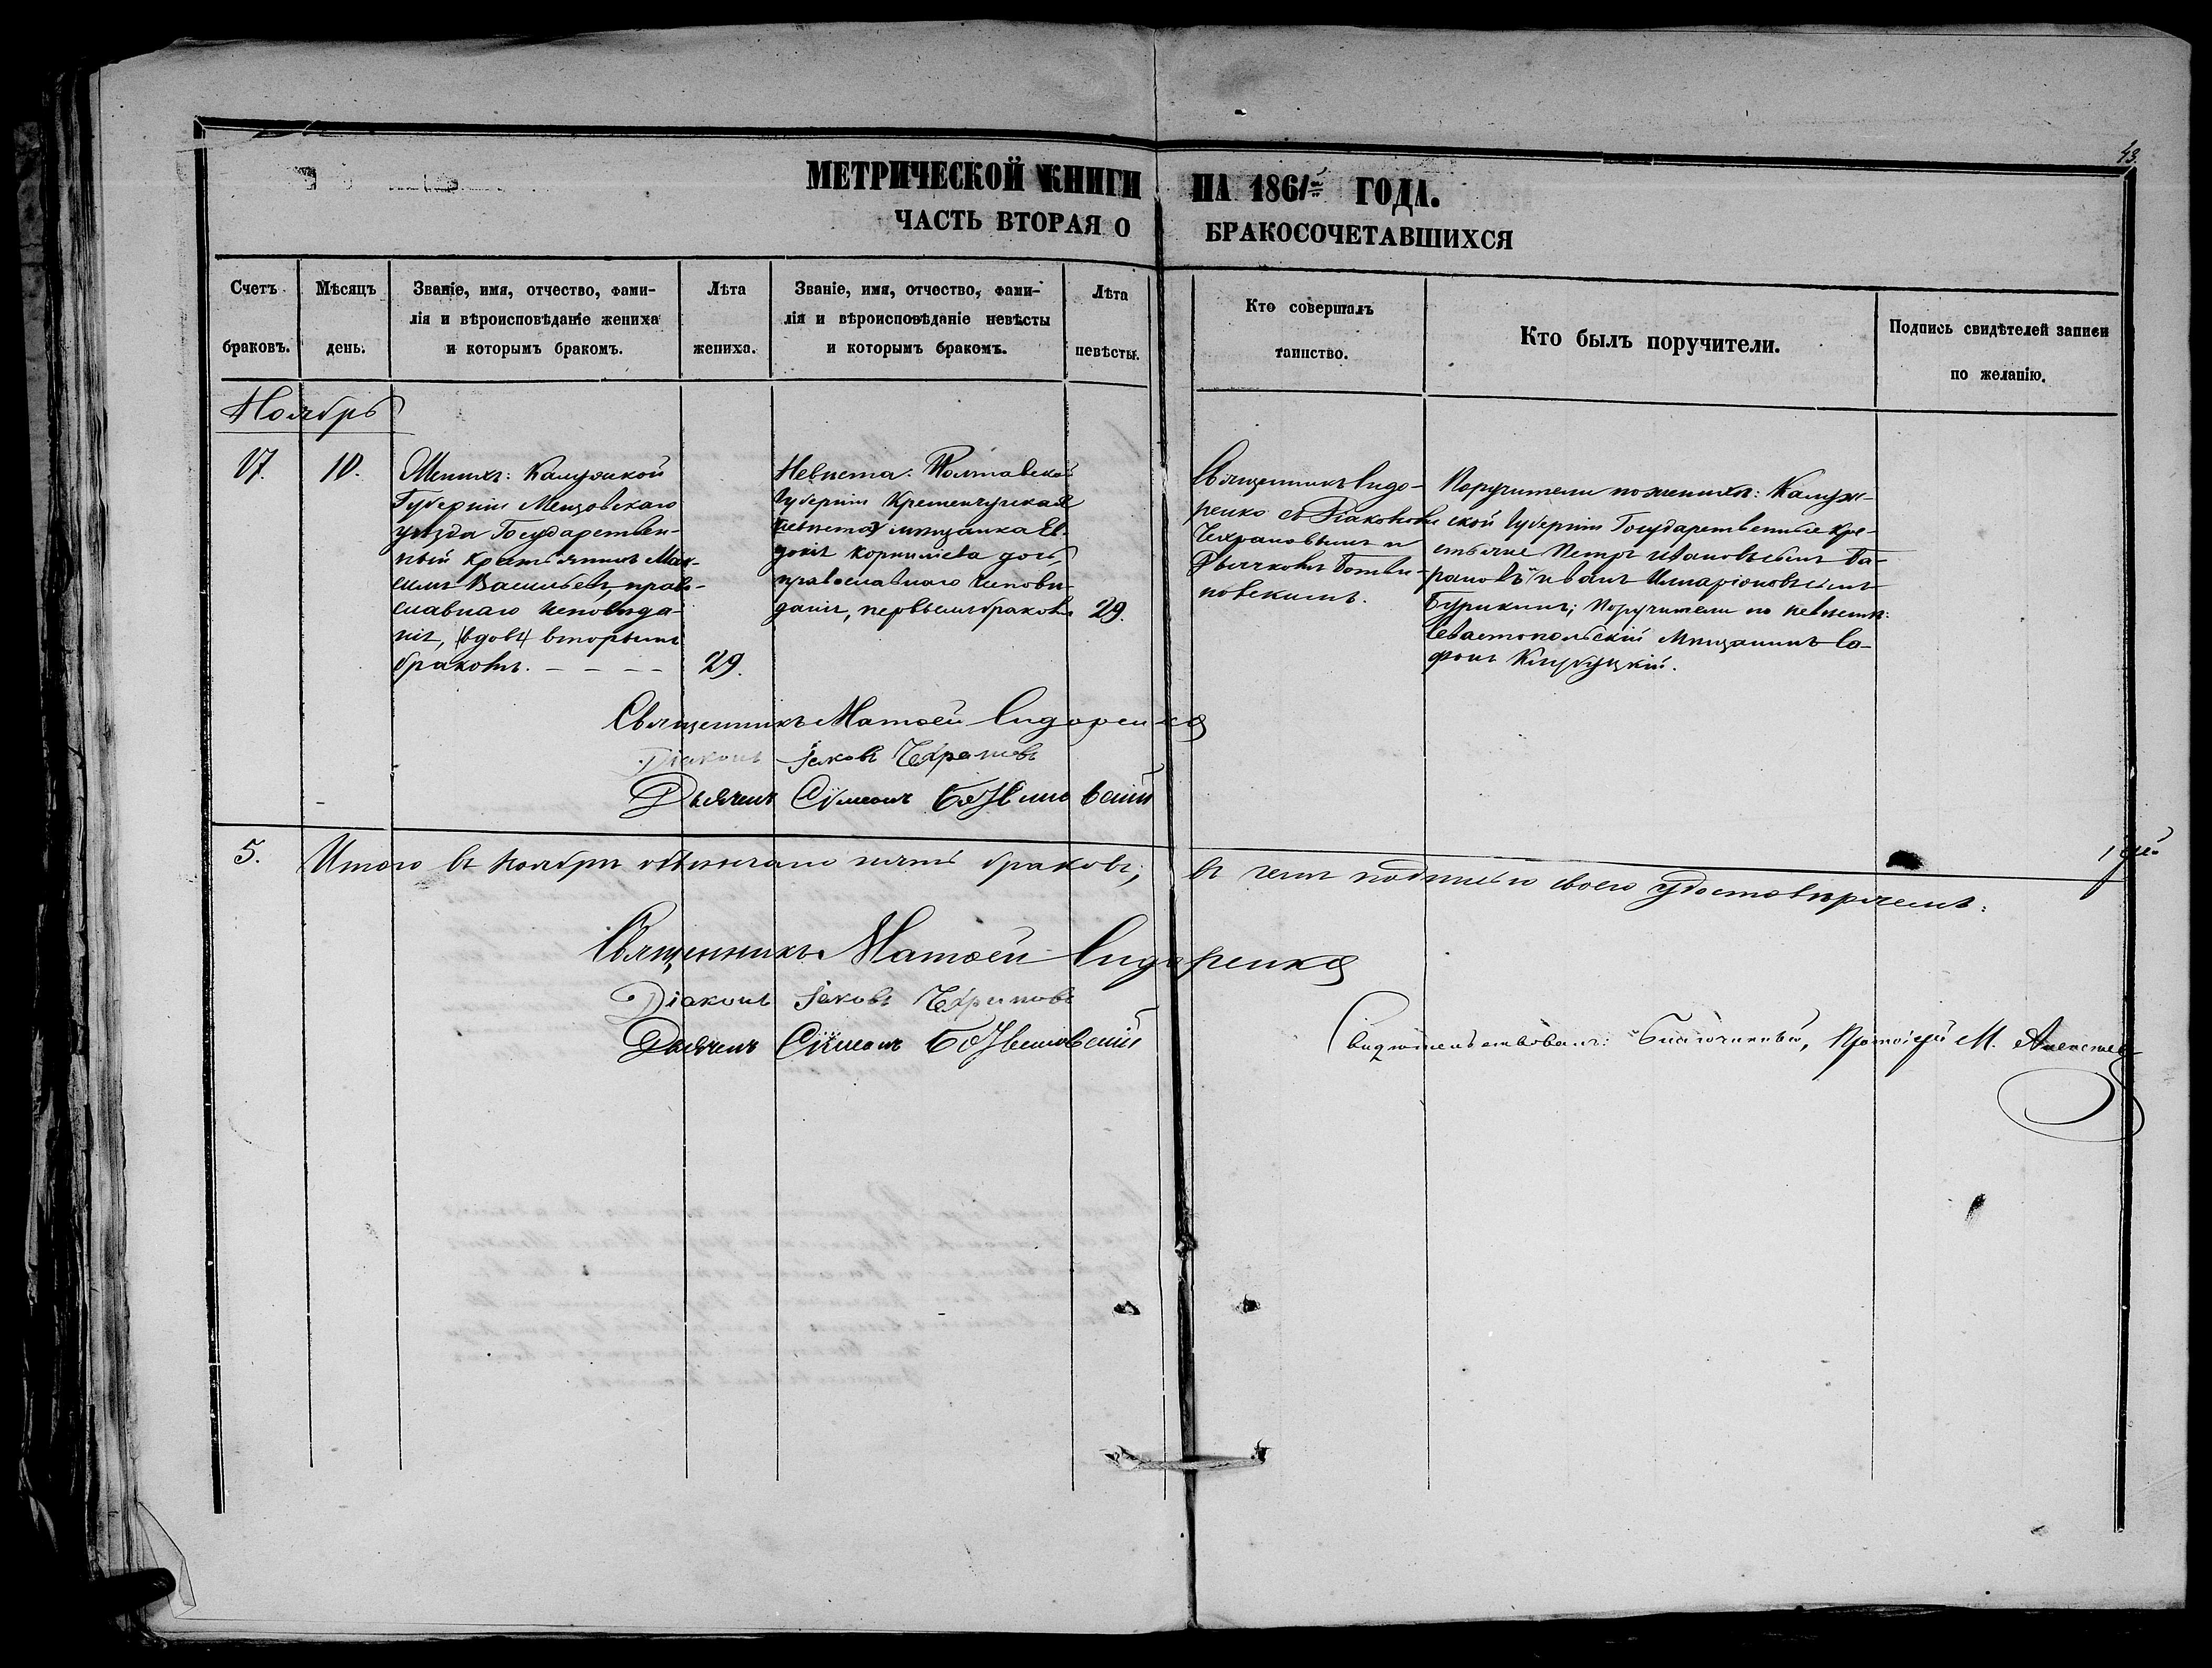 43.
МЕТРИЧЕСКОЙ КНИГИ НА 1861й ГОДА.
ЧАСТЬ ВТОРАЯ О БРАКОСОЧЕТАВШИХСЯ
Счетъ браковъ.
Мѣсяцъ день.
Званіе, имя, отчество, фами-
лія и вѣроисповѣданіе жениха
и которымъ бракомъ.
Лѣта жениха.
Званіе, имя, отчество, фами-
лія и вѣроисповѣданіе невѣсты
и которымъ бракомъ.
Лѣта невѣсты.
Кто совершалъ
таинство.
Кто былъ поручители.
Подпись свидѣтелей записи
по желанію.
Ноябрь
17.
10.
Женихъ: Калужской
Губерніи Мещовскаго
уѣзда Государствен-
ный Крестьянинъ Мак-
симъ Васильевъ, право-
славнаго исповѣда-
нія, (вдовъ) вторымъ
бракомъ. – – – –
29.
Невѣста: Полтавской
Губерніи Кременчугская
мѣщанка Ев-
докія Корнилiева дочь,
православнаго исповѣ-
данія, первымъ бракомъ.
29.
Священникъ Сидо-
ренко съ Діакономъ
Чехрановымъ и
Дьячкомъ Ботви-
новскимъ.
Поручители по женихѣ: Калуж-
ской Губерніи Государственные Кре-
стьяне Петръ Ивановъ сынъ Ба-
рановъ и Иванъ Иларіоновъ сынъ
Бурикинъ; Поручители по невѣстѣ:
Севастопольскій Мѣщанинъ Са-
фонъ
Священникъ Матѳей Сидоренко
Діаконъ Іаковъ Чехрановъ
Дьячекъ Сѷмеонъ Ботвиновскій
5.
Итого въ Ноябрѣ обвѣнчано пять браковъ; въ чемъ подписью своею удостовѣряемъ:
Священникъ Матѳей Сидоренко
Діаконъ Іаковъ Чехрановъ
Дьячекъ Сѷмеонъ Ботвиновскій
Свидѣтельствовалъ: Благочинный, Протоіерей М. Алексѣевъ